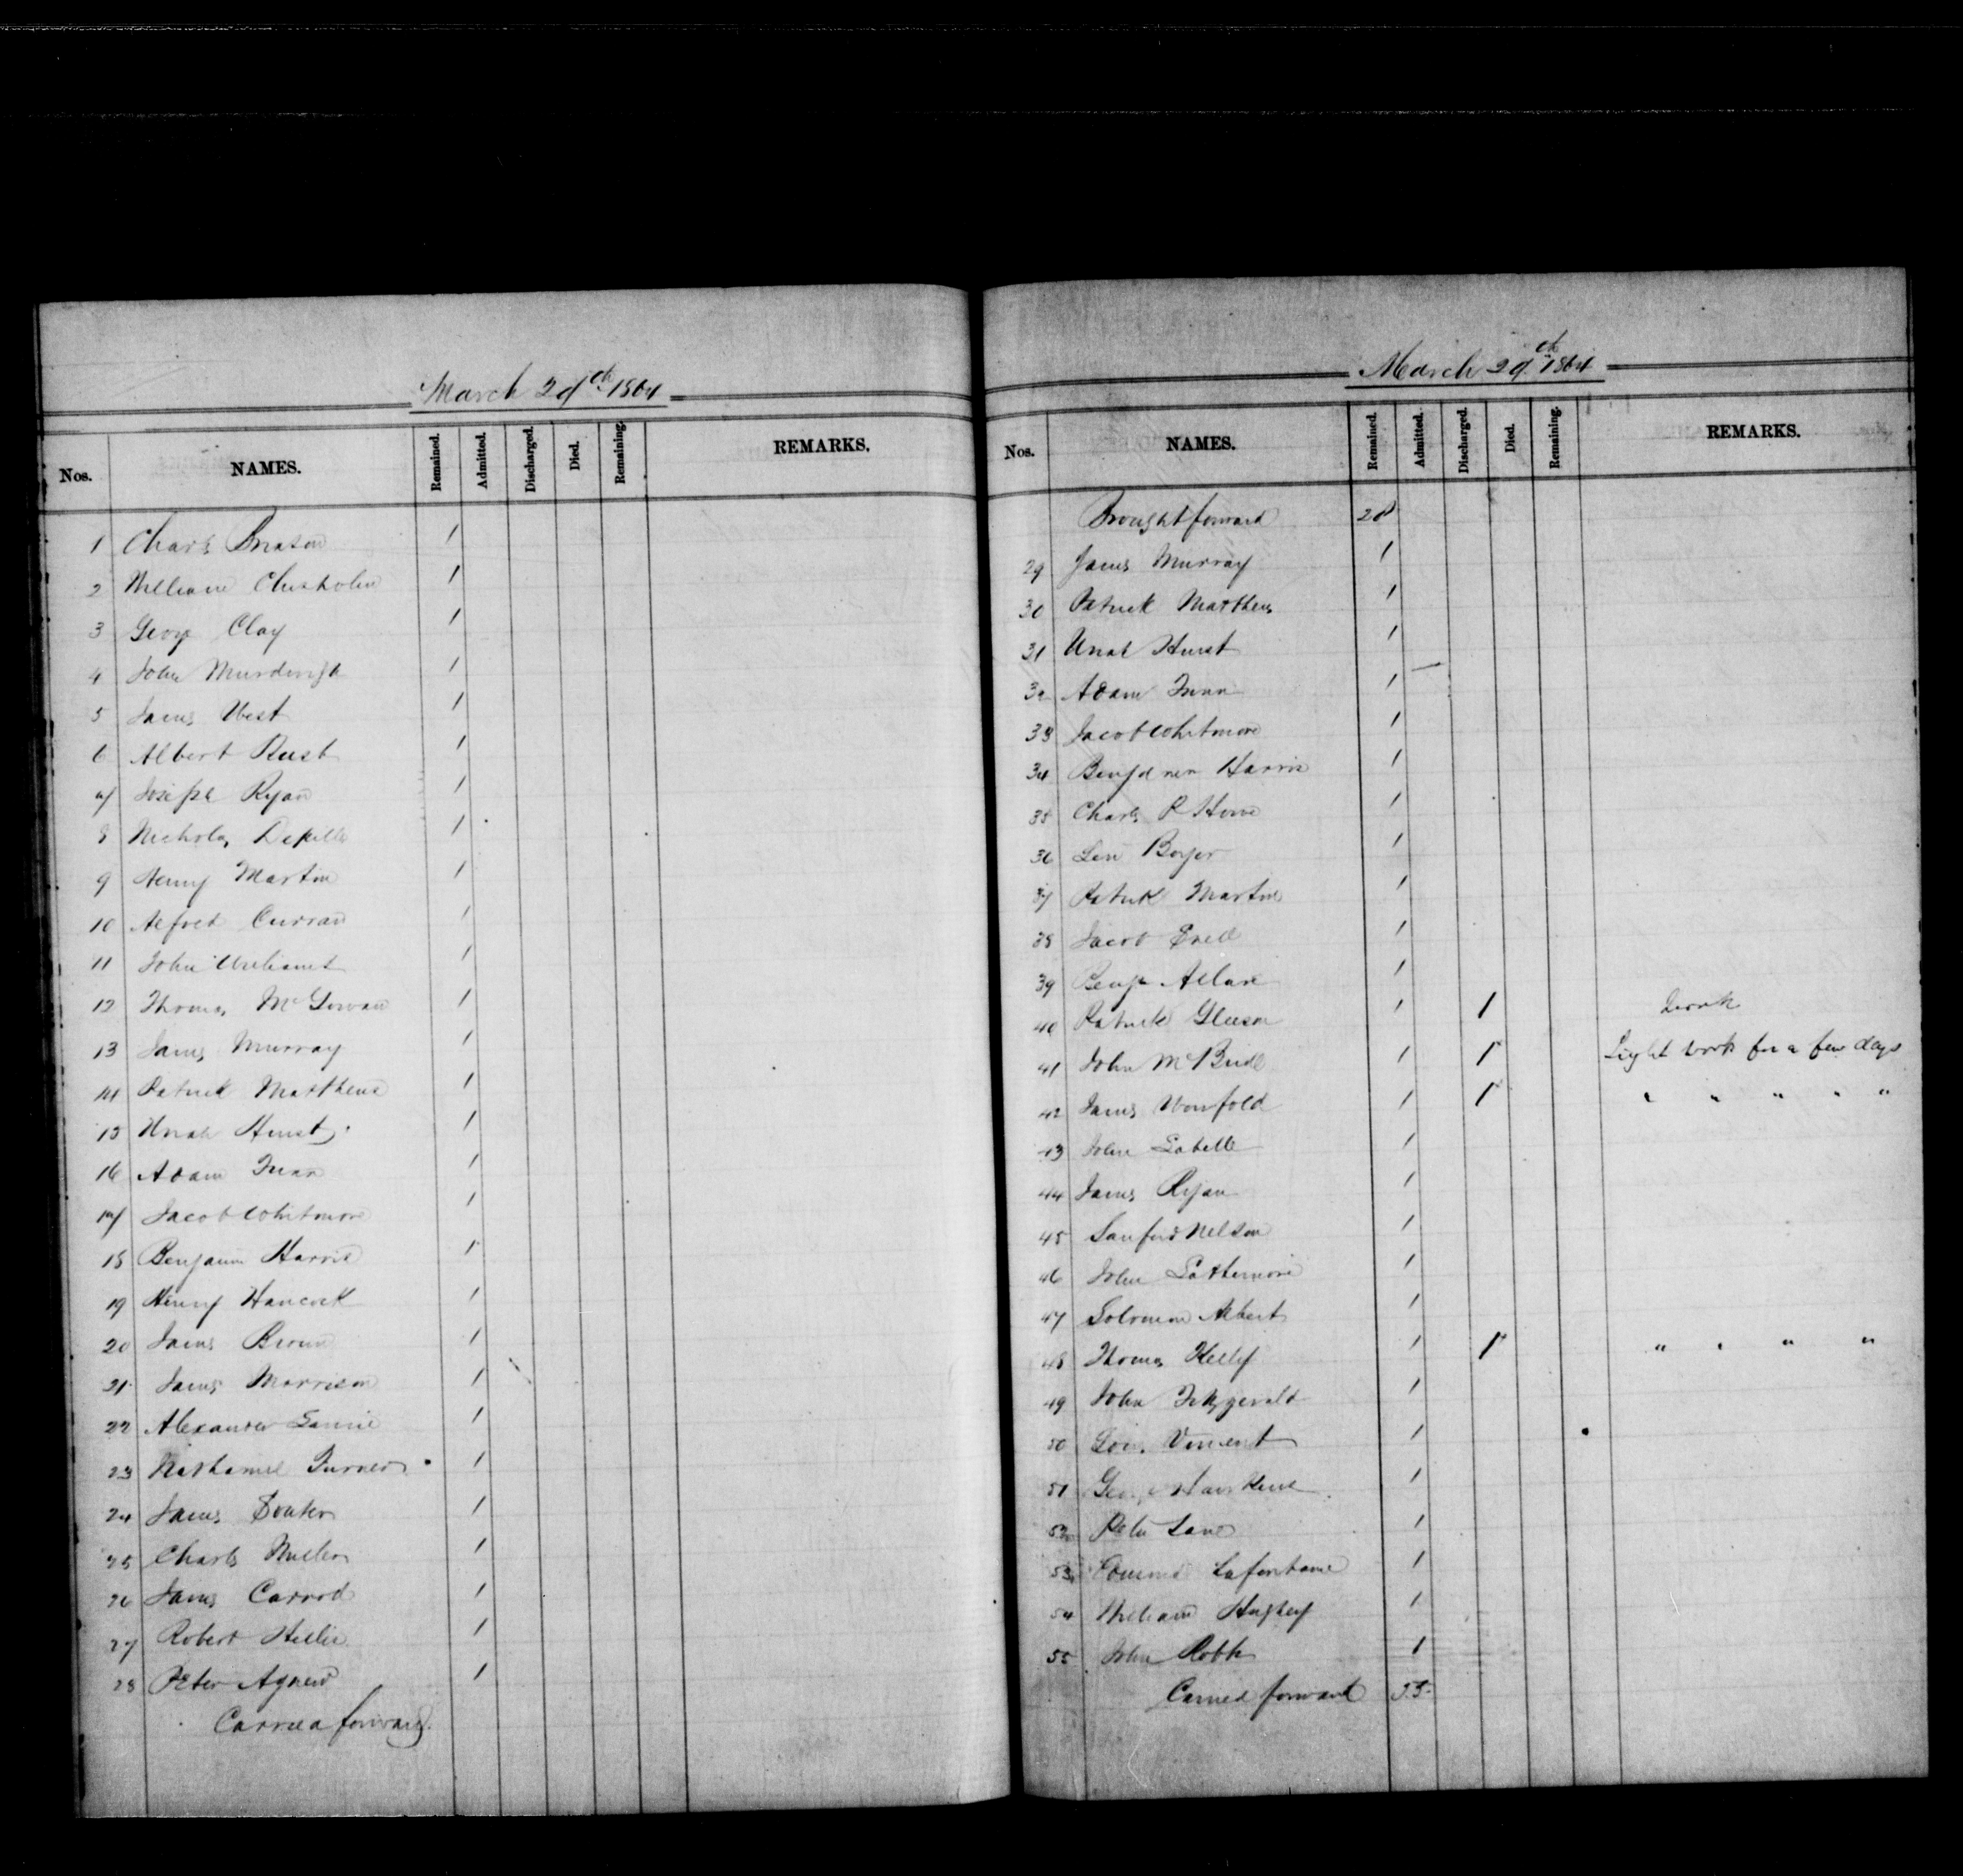 March 29th 1864
Nos. NAMES. Remained. Admitted. Discharged. Died. Remaining. REMARKS.
1 Charls 1
2 William Chisholm 1
3 George Clay 1
4 John Murdough 1
5 James West 1
6 Albert Rust 1
7 Joseph Ryan 1
8 Nicholas 1
9 Henry Martin 1
10 Alfred Curran 1
11 John Williams 1
12 Thomas McGowan 1
13 James Murray 1
14 Patrick Matthews 1
15 Uriah Hurst 1
16 Adam 1
17 Jacob Whitmore 1
18 Benjamin Harris 1
19 Henry Hancock 1
20 James Brown 1
21 James Morrison 1
22 Alexander 1
23 Nathaniel Turner 1
24 James 1
25 Charls Miller 1
26 James Carrol 1
27 Robert 1
28 Peter Agnew 1
Carried forward
March 29th 1864
Nos. NAMES. Remained. Admitted. Discharged. Died. Remaining. REMARKS.
Brought forward 28
29 James Murray 1
30 Patrick Matthews 1
31 Uriah Hurst 1
32 Adam 1
33 Jacob Whitmore 1
34 Harris 1
35 Charls R Howe 1
36 Levi Boyer 1
37 Patrick Martin 1
38 Jacob 1
39 Benja 1
40 Patrick Gleeson 1 1
41 John McBride 1 1 Light work for a few days
42 James Wonfold 1 1 " " " " "
43 John Labelle 1
44 James Ryan 1
45 Sanford Nelson 1
46 John Lattemore 1
47 Solomon Albert 1
48 Thomas Kelly 1 1 " " " "
49 John Fitzgerald 1
50 Louis Vincent 1
51 George Hawkins 1
52 Peter Lane 1
53 Edmund Lafontaine 1
54 William Hughey 1
55 John Robb 1
Carried forward 55